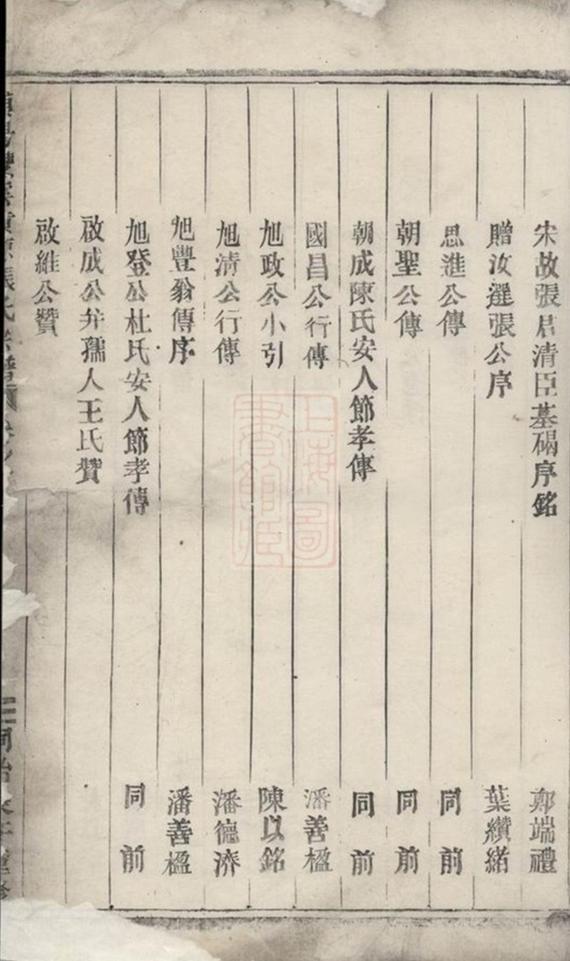 宋故張君清臣墓碣序銘 鄭端禮
贈汝遲張公序 葉纘緒
思進公傳 同前
朝聖公傳 同前
朝成陳氏安人節孝傳 同前
國昌公行傳 潘善楹
旭政公小引 陳以銘
旭清公行傳 潘德濟
旭豐翁傳序 潘善楹
旭登公杜氏安人節孝傳 同前
啟成公弁孺人王氏贊
啟維公贊
張氏宗譜
同治
上海圖書館藏